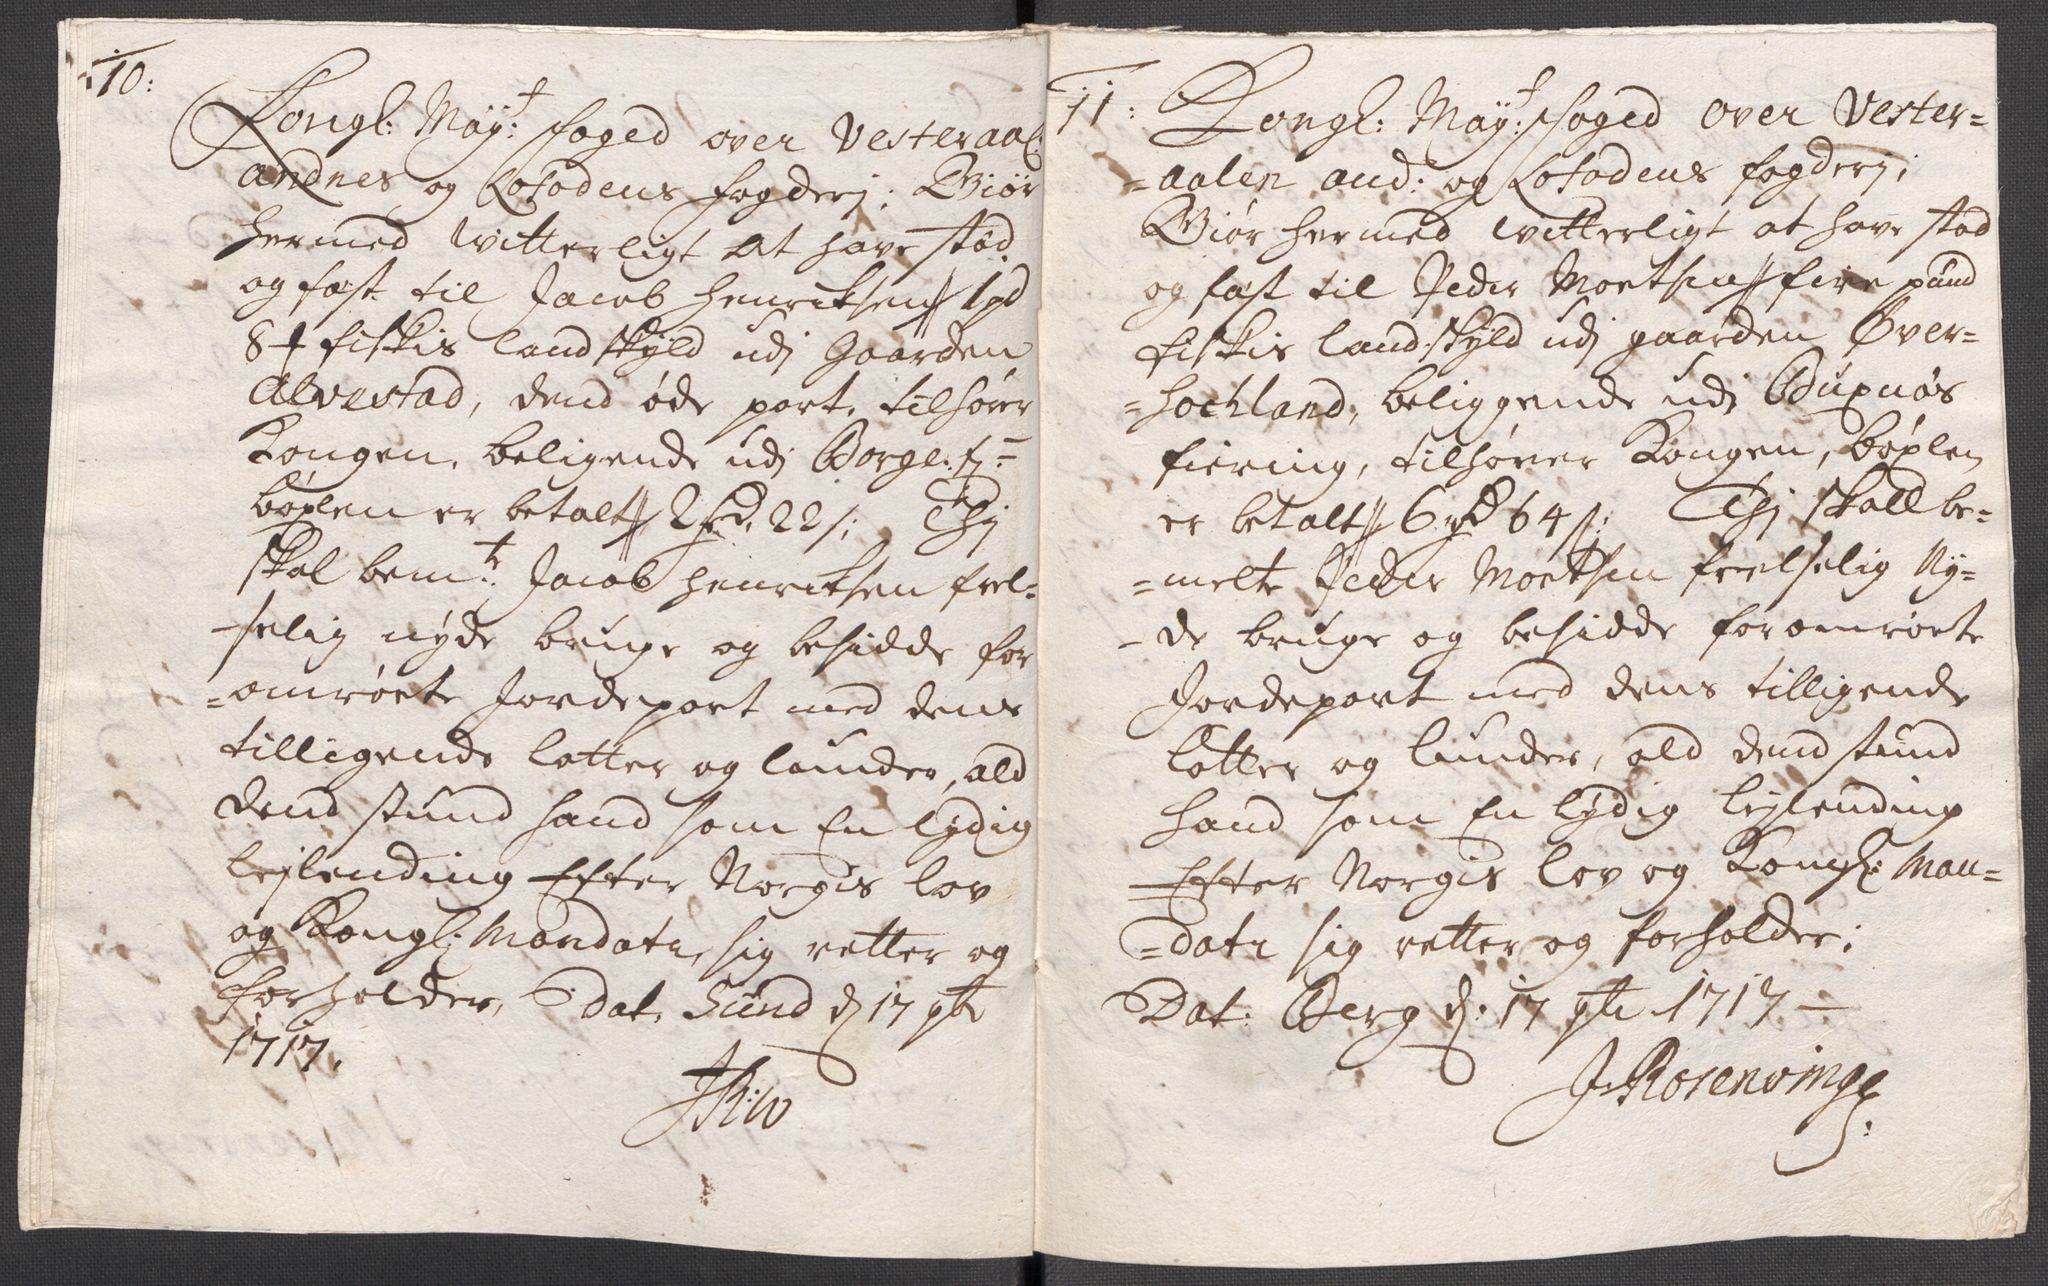 10:
Kongl: May:t foged over Vesteraal:
Andnes og Lofodens fogderj; Giør
hermed witterligt at have stæd
og fæst til Jacob Henricksen // 1 pd
8 # fiskis landskyld udj Gaarden
Alvestad, dend øde part, tilhører
Kongen, beligende udj Borge: fj:=
bøxlen er betalt // 2 22 s: Thj
skal bem:te Jacob Henricksen frel=
=selig nyde bruge og besidde for
=omrørte Jordepart med dens
tilligende lotter og lunder, ald
dend stund hand som En lydig
lejlending Efter Norgis lov
og Kongl: Mandater, sig retter og
forholder, dat. Sund d 17
1717.
JR:W
11:
Kongl: May:t foged over Vester=
=aalen And: og Lofodens fogderj;
Giør hermed witterligt at have stæd
og fæst til Peder Mortsen // fire pund
fiskis land.skyld udj gaarden Øver=
=hochland, beliggende udj Buxnæs
fiering, tilhører Kongen, bøxlen
er betalt // 6 64 s; Thj skall be=
=melte Peder Mortsen frelselig Ny=
=de bruge og besidde foromrørte
Jordepart med dens tilligende
lotter og lunder, ald dend stund
hand som En lydig lejlending
Efter Norgis lov og Kongl: Man=
=dater sig retter og forholder;
Dat: Berg d: 17 1717 —
J: Rosenvinge